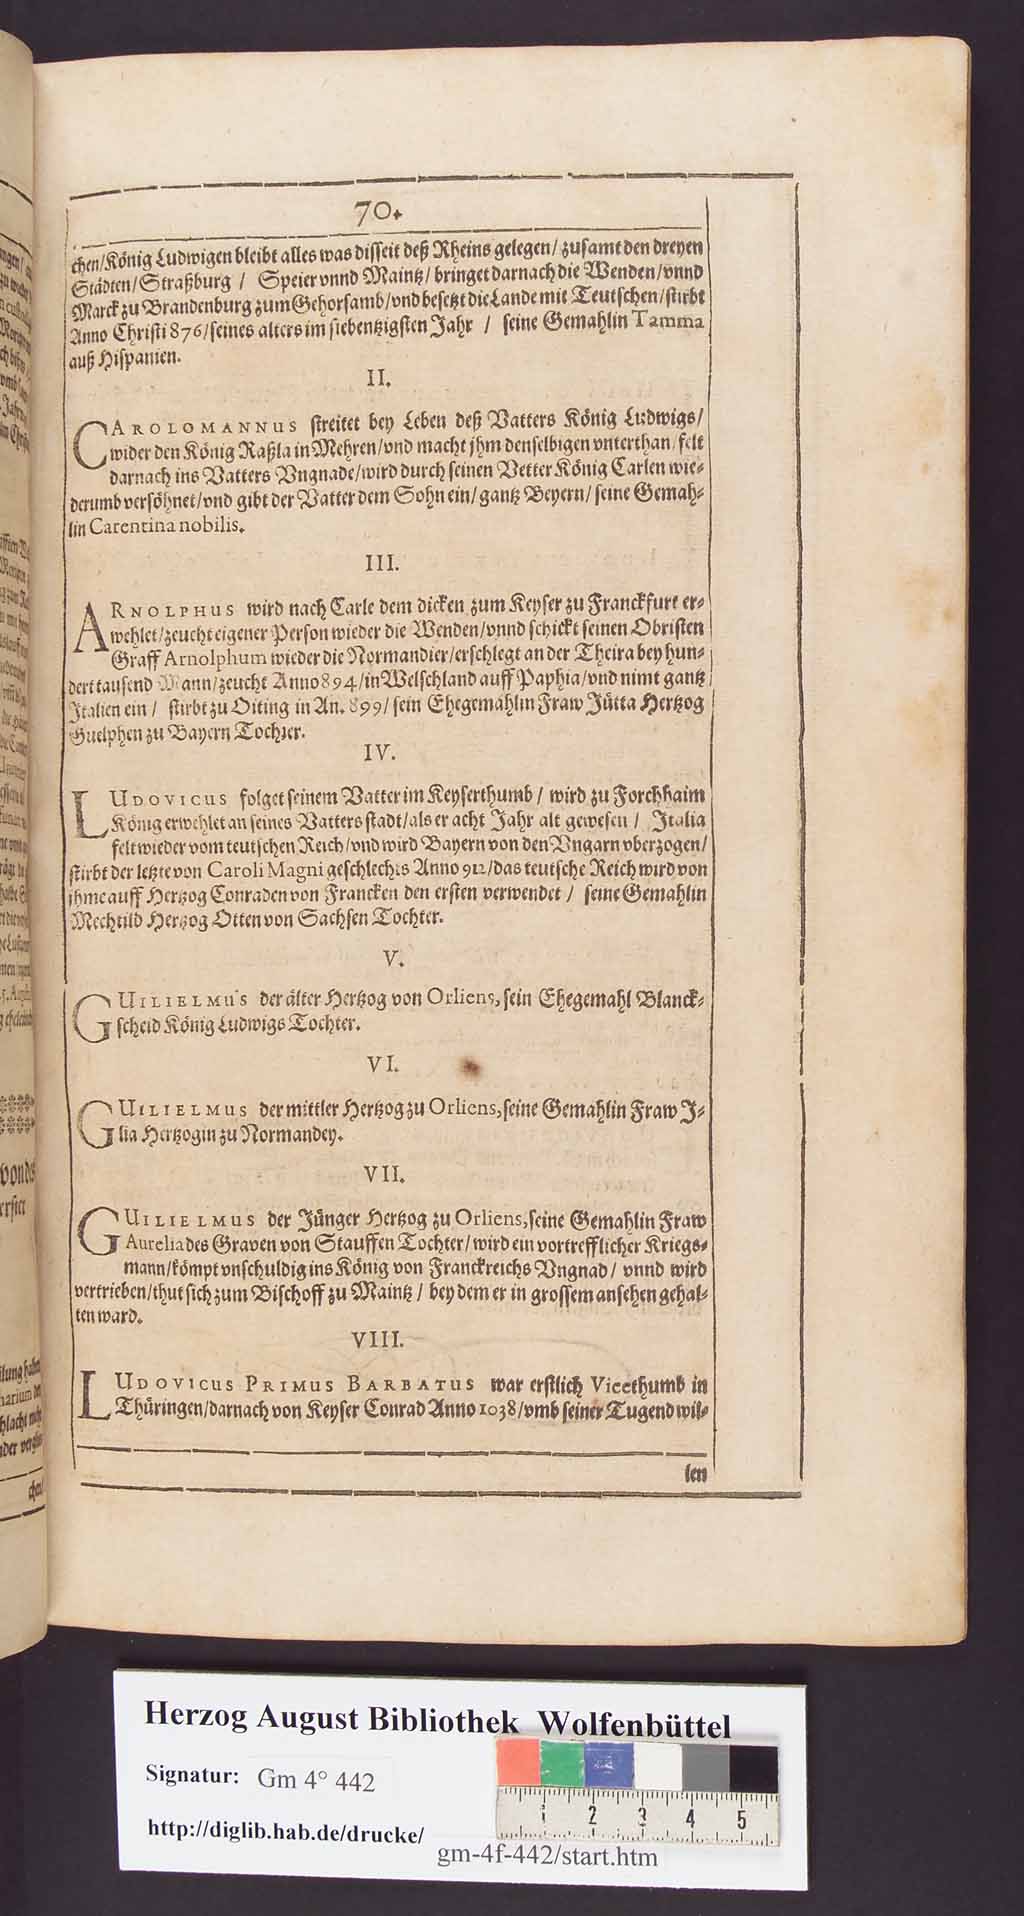 70.
chen/König Ludwigen bleibt alles was disseit deß Rheins gelegen/ zusamt den dreyen
Städten/Straßburg / Speier vnnd Maintz/ bringet darnach die Wenden/vnnd
Marck zu Brandenburg zum Gehorsamb/vnd besetzt die Lande mit Teutschen/stirbt
Anno Christi 876/seines alters im siebentzigsten Jahr / seine Gemahlin Tamma
auß Hispanien.
II.
CAROLOMANNUS streitet bey Leben deß Vatters König Ludwigs/
wider den König Raßla in Mehren/vnd macht jhm denselbigen vnterthan/felt
darnach ins Vatters Vngnade/wird durch seinen Vetter König Carlen wie-
derumb versöhnet/vnd gibt der Vatter dem Sohn ein/ gantz Beyern/ seine Gemah-
lin Carentina nobilis.
III.
ARNOLPHUS wird nach Carle dem dicken zum Keyser zu Franckfurt er-
wehlet/zeucht eigener Person wieder die Wenden/vnnd schickt seinen Obristen
Graff Arnolphum wieder die Normandier/erschlegt an der Theira bey hun-
dert tausend Mann/zeucht Anno 894/in Welschland auff Paphia/vnd nimt gantz
Italien ein / stirbt zu Oiting in An. 899/ sein Ehegemahlin Fraw Jütta Hertzog
Guelphen zu Bayern Tochter.
IV.
LUDOVICUS folget seinem Vatter im Keyserthumb / wird zu Forchhaim
König erwehlet an seines Vatters stadt/als er acht Jahr alt gewesen / Italia
felt wieder vom teutschen Reich/vnd wird Bayern von den Vngarn vberzogen/
stirbt der letzte von Caroli Magni geschlechts Anno 912/das teutsche Reich wird von
jhme auff Hertzog Conraden von Francken den ersten verwendet / seine Gemahlin
Mechtild Hertzog Otten von Sachsen Tochter.
V.
GUILIELMUS der älter Hertzog von Orliens, sein Ehegemahl Blanck-
scheid König Ludwigs Tochter.
VI.
GUILIELMUS der mittler Hertzog zu Orliens, seine Gemahlin Fraw J-
lia Hertzogin zu Normandey.
VII.
GUILIELMUS der Jünger Hertzog zu Orliens, seine Gemahlin Fraw
Aurelia des Graven von Stauffen Tochter/wird ein vortrefflicher Kriegs-
mann/kömpt vnschuldig ins König von Franckreichs Vngnad/ vnnd wird
vertrieben/thut sich zum Bischoff zu Maintz / bey dem er in grossem ansehen gehal-
ten ward.
VIII.
LUDOVICUS PRIMUS BARBATUS war erstlich Vicethumb in
Thüringen/darnach von Keyser Conrad Anno 1038/vmb seiner Tugend wil-
len
Herzog August Bibliothek Wolfenbüttel
Signatur: Gm 4° 442
http://diglib.hab.de/drucke/
gm-4f-442/start.htm
1 2 3 4 5